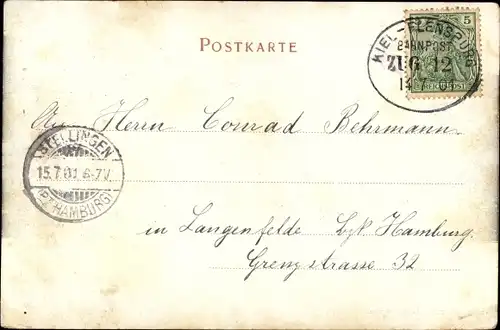 POSTKARTE
KIEL-FLENSBURG
BAHNPOST
ZUG 12
5
An Herrn Conrad Behrmann
STELLINGEN
15.7.01 6-7V.
(BZ. HAMBURG)
in Langenfelde bz/k Hamburg.
Grenzstrasse 32